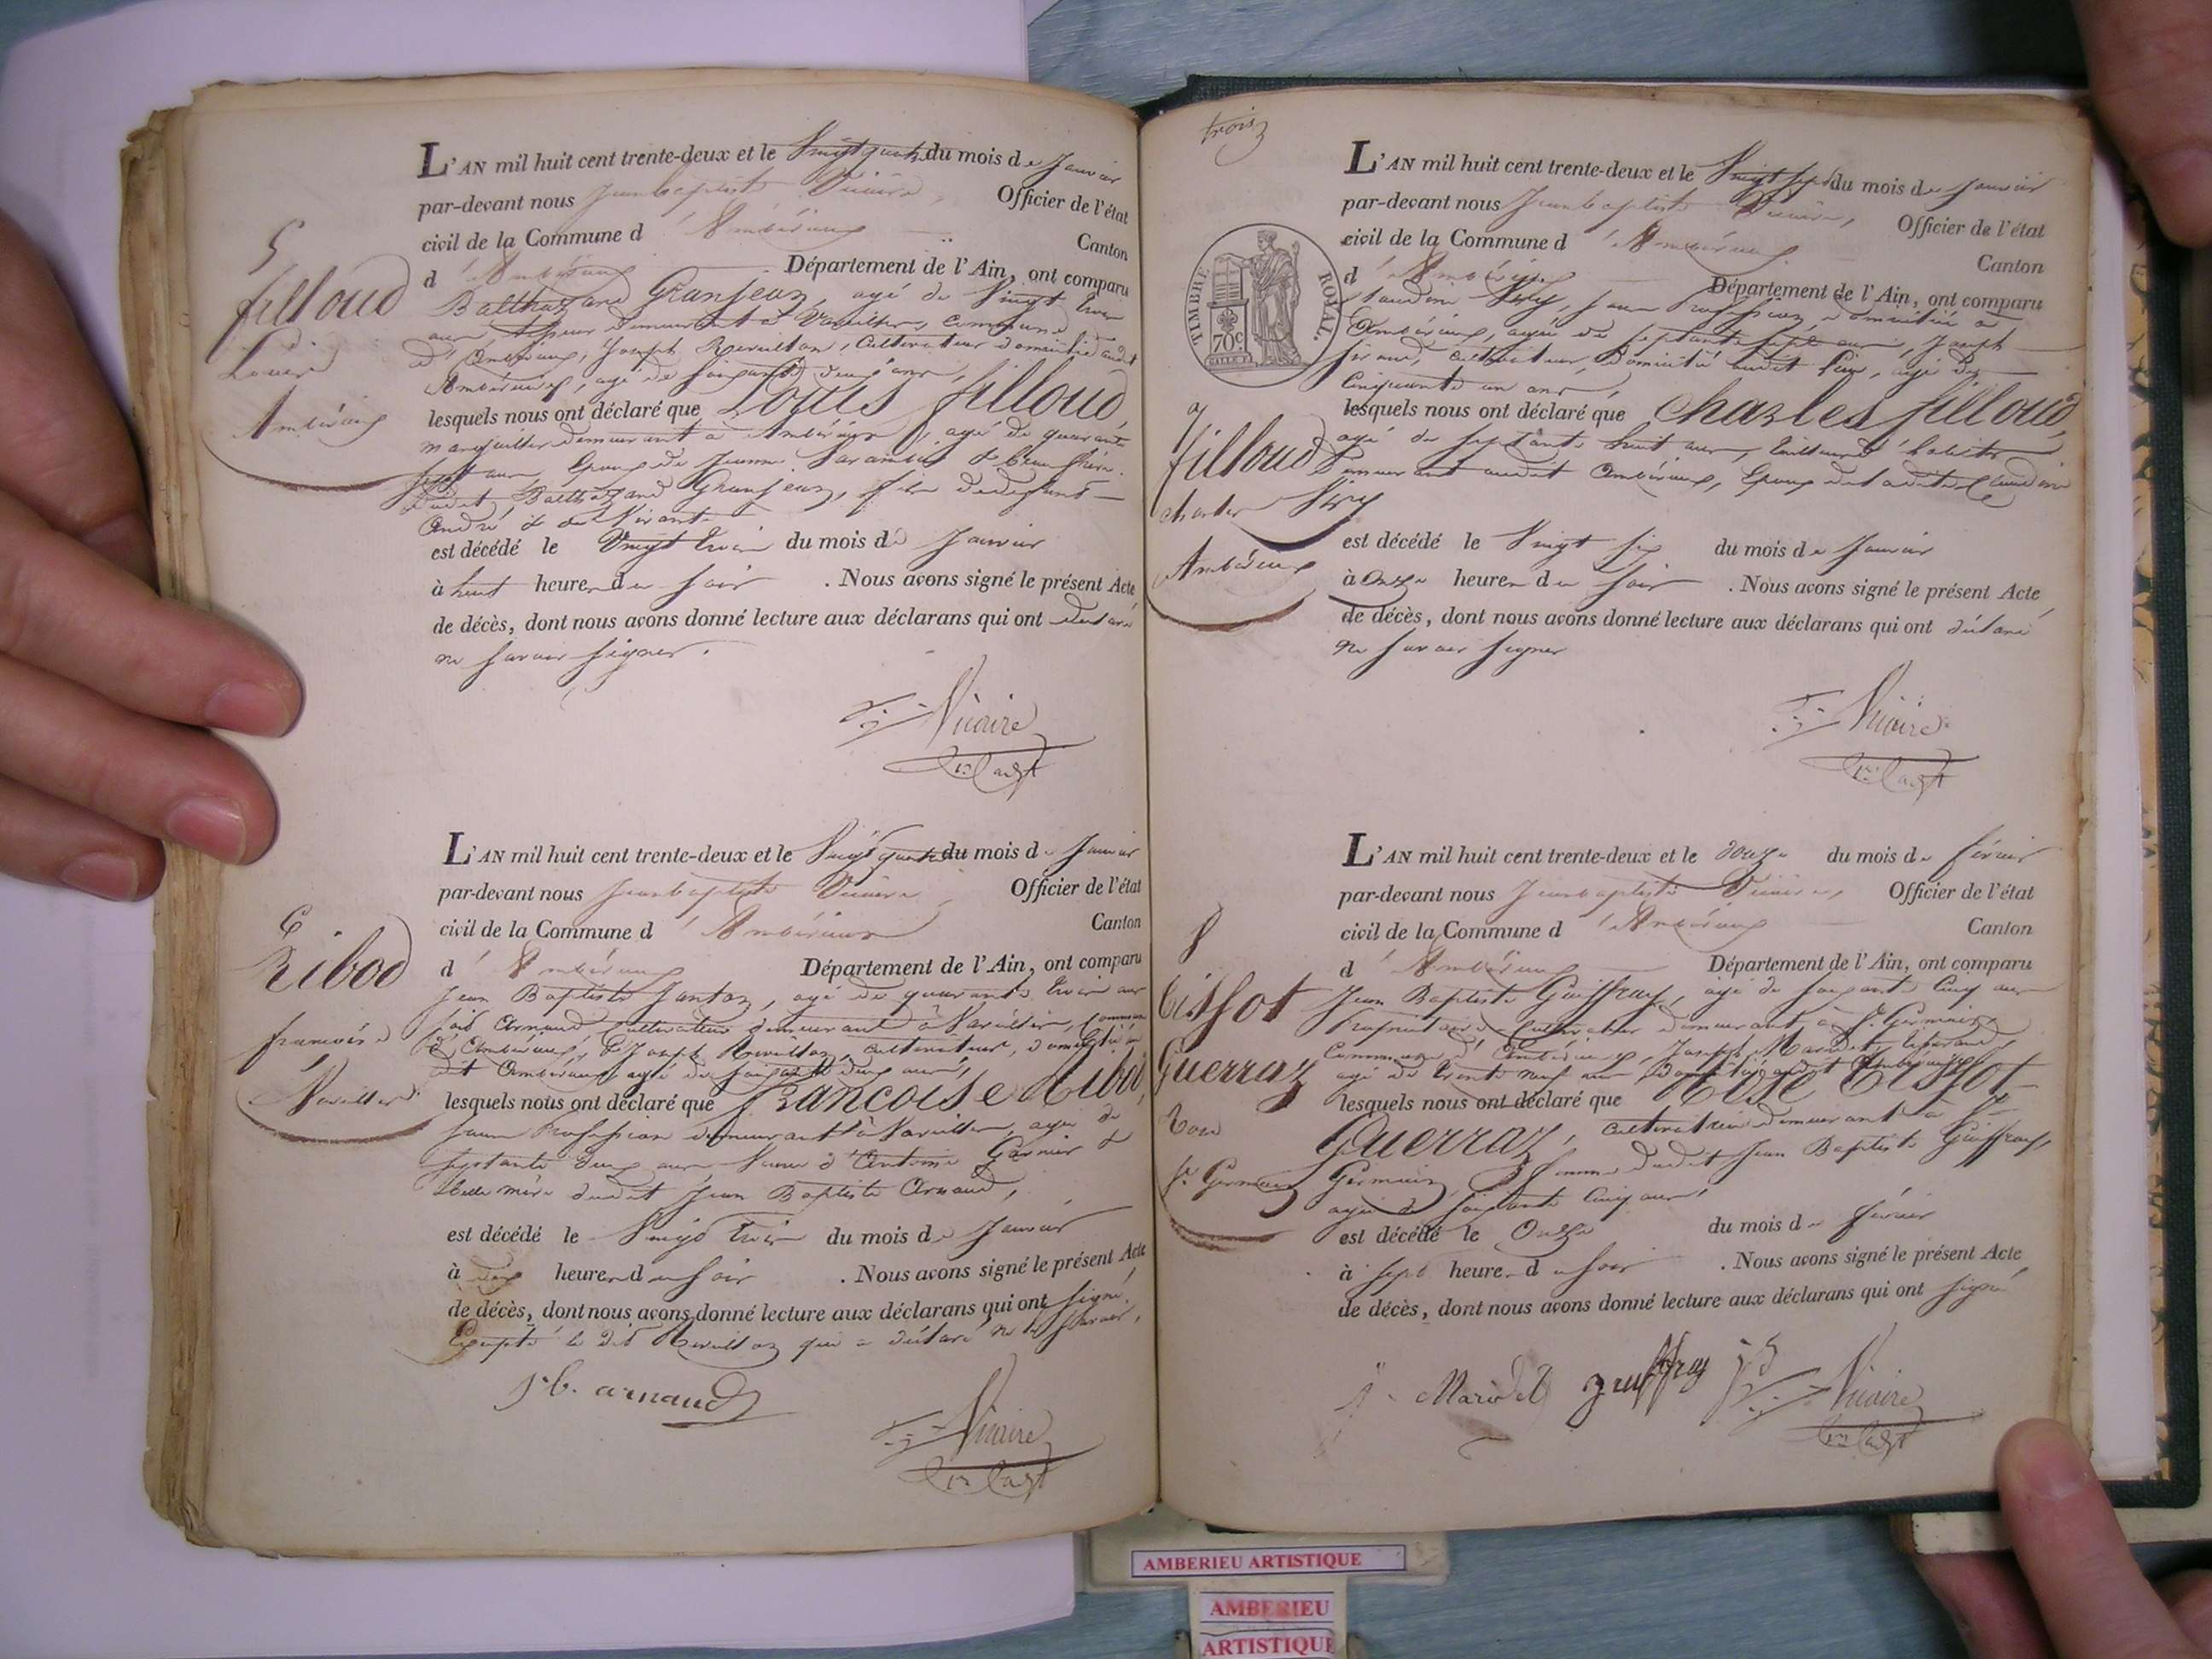 L'AN mil huit cent trente-deux et le Vingt quatre du mois de Janvier
par-devant nous Jean baptiste Vicaire, Officier de l'état
civil de la Commune d'Ambérieux Canton
d'Ambérieux Département de l'Ain, ont comparu
Balthazard Granjean, agé de Vingt trois
ans, demeurant à Vareilles, commune
d'Ambérieux, Joseph Revillon, Cultivateur domicilié audit
Ambérieux, agé de soixante deux ans,
lesquels nous ont déclaré que Louis filloud,
marguillier demeurant à Ambérieux, agé de quarante
sept ans, Epoux de Jeanne & beau frère
dudit Balthazard Granjean, fils de defunt
André & de Vivant
est décédé le Vingt trois du mois de Janvier
à huit heures du soir. Nous avons signé le présent Acte
de décès, dont nous avons donné lecture aux déclarans qui ont declaré
ne savoir signer.
5
filloud
Louis
Ambérieux
Vicaire
L'AN mil huit cent trente-deux et le Vingt quatre du mois de Janvier
par-devant nous Jean baptiste Vicaire, Officier de l'état
civil de la Commune d'Ambérieux Canton
d'Ambérieux Département de l'Ain, ont comparu
Jean Baptiste Janton, agé de quarante trois ans
dit Arnaud Cultivateur demeurant à Vareilles, commune
d'Ambérieux, & Joseph Revillon, cultivateur, domicilié au
dit Ambérieux agé de soixante deux ans,
lesquels nous ont déclaré que francoise Ribod,
sans Profession demeurant à Vareilles, agée de
septante deux ans Veuve d'Antoine Garnier &
Belle mère dudit Jean Baptiste Arnaud,
est décédé le Vingt trois du mois de Janvier
à dix heures du soir. Nous avons signé le présent Acte
de décès, dont nous avons donné lecture aux déclarans qui ont signé,
Excepté le dit Revillon qui a déclaré ne le savoir,
6
Ribod
francoise
Vareilles
J b. arnaud
Vicaire
trois
TIMBRE ROYAL.
70c.
L'AN mil huit cent trente-deux et le Vingt sept du mois de Janvier
par-devant nous Jean baptiste Vicaire, Officier de l'état
civil de la Commune d'Ambérieux Canton
d'Ambérieux Département de l'Ain, ont comparu
Claudine Viry, sans Profession domiciliée à
Ambérieux, agée de septante sept ans, Joseph
cultivateur, domicilié audit lieu, agé de
Cinquante un ans,
lesquels nous ont déclaré que Charles filloud,
agé de septante huit ans, tailleur d'habits
demeurant audit Ambérieux, Epoux de ladite Claudine
Viry
est décédé le Vingt six du mois de Janvier
à Onze heures du soir. Nous avons signé le présent Acte
de décès, dont nous avons donné lecture aux déclarans qui ont déclaré
ne savoir signer
7
filloud
charles
Ambérieux
Vicaire
L'AN mil huit cent trente-deux et le douze du mois de février
par-devant nous Jean baptiste Vicaire, Officier de l'état
civil de la Commune d'Ambérieux Canton
d'Ambérieux Département de l'Ain, ont comparu
Jean Baptiste Guiffray, agé de soixante Cinq ans
Propriétaire Cultivateur demeurant à St Germain
Commune d'Ambérieux, Joseph Maridet
agé de trente neuf ans domicilié audit Ambérieux
lesquels nous ont déclaré que Rose Tissot
Guerraz, cultivatrice demeurant à St
Germain, femme dudit Jean Baptiste Guiffray,
agée de soixante Cinq ans,
est décédé le Onze du mois de février
à sept heures du soir. Nous avons signé le présent Acte
de décès, dont nous avons donné lecture aux déclarans qui ont signé
8
Tissot
Guerraz
Rose
St Germain
J Maridet
Vicaire
AMBERIEU ARTISTIQUE
AMBERIEU
ARTISTIQUE